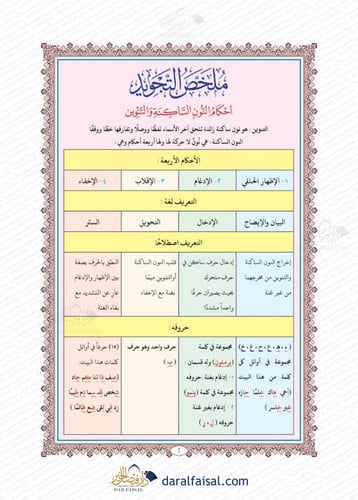 ملخص التجويد
أحكام النون الساكنة والتنوين
التنوين : هو نون ساكنة زائدة تلحق آخر الأسماء لفظًا ووصلًا وتفارقها خطًا ووقفًا
النون الساكنة : هي نُونٌ لا حركة لها ولها أربعة أحكام وهي :
الأحكام الأربعة :
١- الإظهار الحلقي ٢- الإدغام ٣- الإقلاب ٤- الإخفاء
التعريف لغة :
البيان والإيضاح الإدخال التحويل الستر
التعريف اصطلاحًا
إخراج النون الساكنة إدخال حرف ساكن في قلب النون الساكنة النطق بالحرف بصفة
والتنوين من مخرجهما حرف متحرك أو التنوين ميمًا بين الإظهار والإدغام
من غير غنة بحيث يصيران حرفًا بغنة مع الإخفاء عارٍ عن التشديد مع
واحداً مشددًا بقاء الغنة
حروفه :
( ء ، هـ ، ع ، ح ، غ ، خ ) مجموعة في كلمة حرف واحد وهو حرف (١٥) حرفاً في أوائل
مجموعة في أوائل كل يرملون) وله قسمان : ( ب ) كلمات هذا البيت:
كلمة من هذا البيت ١- إدغام بغنة حروفه (صِف ذَا ثَنَا كَم جَادَ
(أخي هاك علمًا حازه في كلمة (ينمو) شَخصٌ قَد سَمَا دُم طَيِّبًا
غير خاسر ) ٢- إدغام بغير غنة زِد فِي تُقًى ضَع ظَالِمًا)
حروفه ( ل ، ر )
١
دار فيصل الخيرية
DAR FAISAL
daralfaisal.com